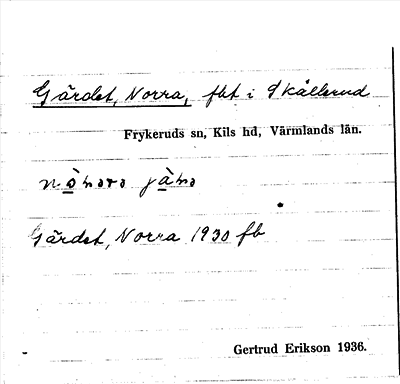 Gärdet, Norra, fbt i Skållerud
Frykeruds sn, Kils hd, Värmlands län.
Gärdet, Norra 1930 fb
Gertrud Erikson 1936.